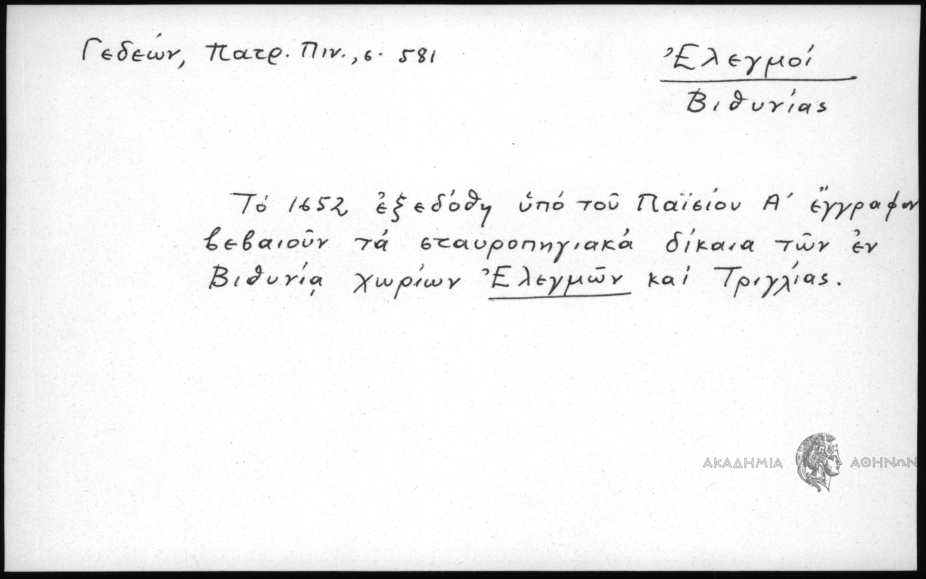 Γεδεών, Πατρ. Πιν., σ. 581
Ἐλεγμοί
Βιθυνίας
Τό 1652 ἐξεδόθη ὑπό τοῦ Παϊσίου Α' ἔγγραφον
βεβαιοῦν τά σταυροπηγιακά δίκαια τῶν ἐν
Βιθυνίᾳ χωρίων Ἐλεγμῶν καί Τριγλίας.
ΑΚΑΔΗΜΙΑ ΑΘΗΝΩΝ